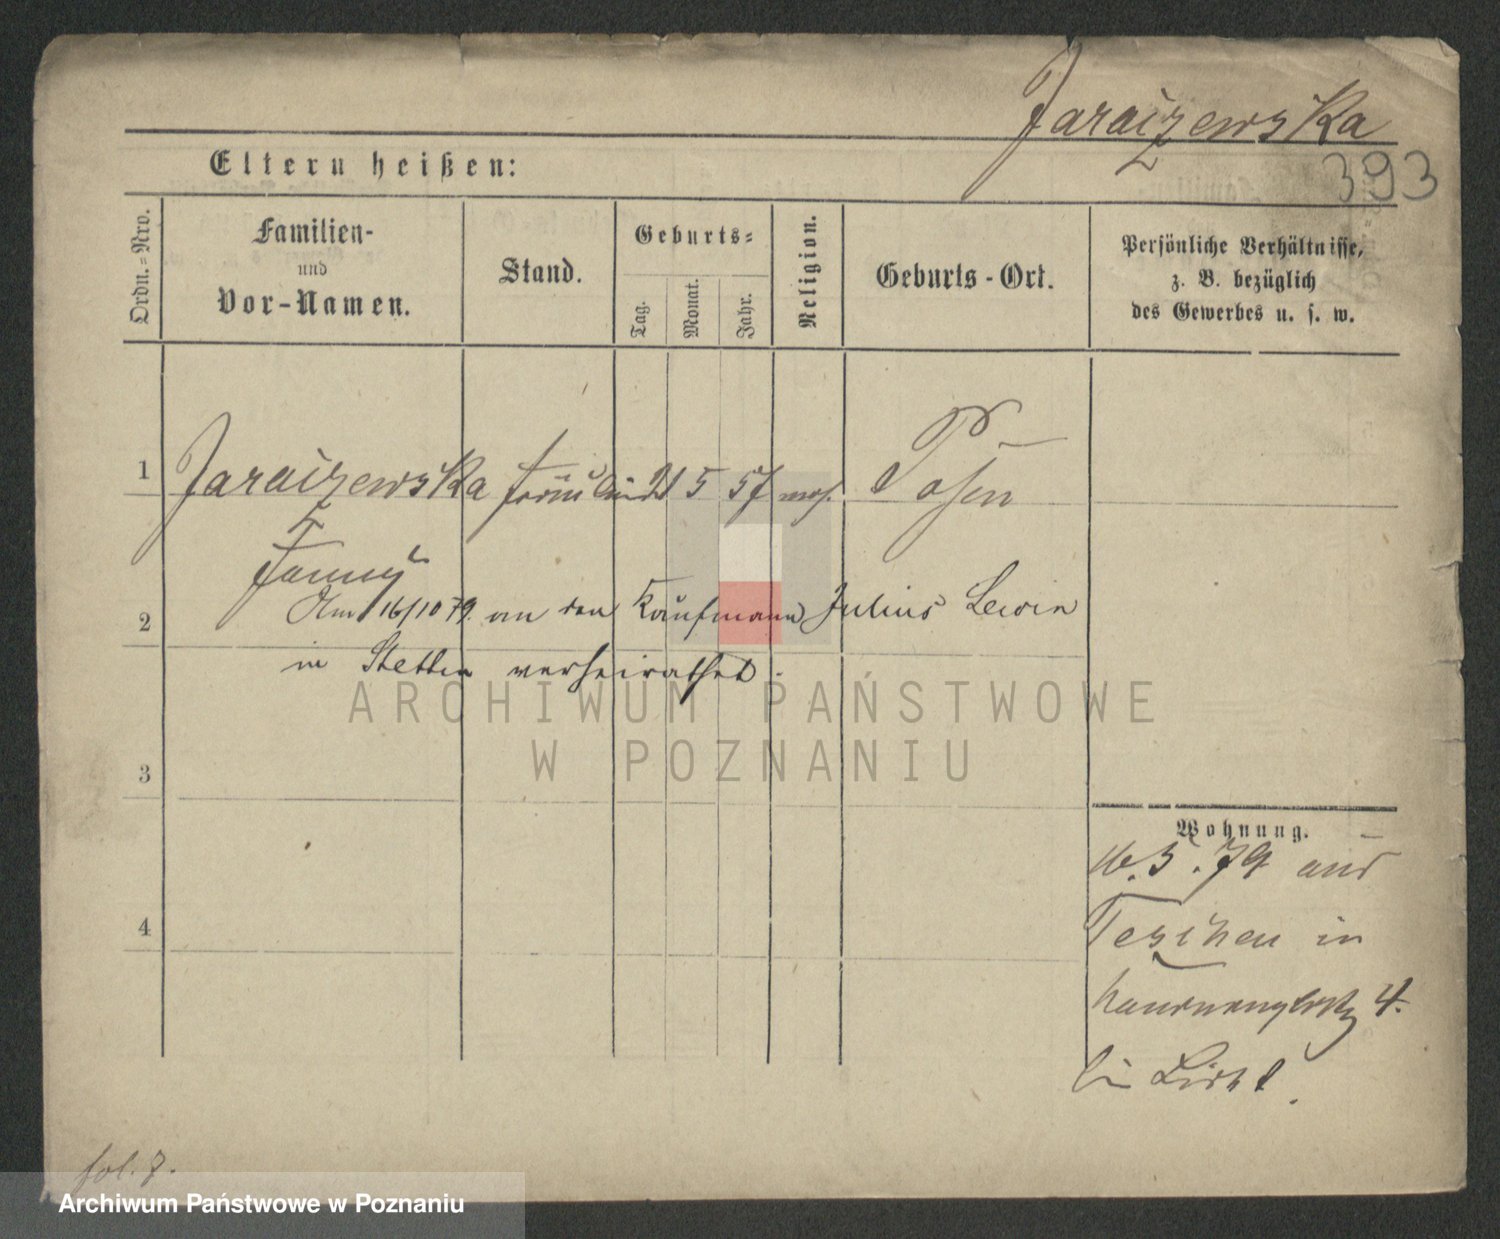 Jaraczewska
393
Eltern heißen:
Ordn.=Nro.
Familien-
und
Vor-Namen.
Stand.
Geburts=
Tag.
Monat.
Jahr.
Religion.
Geburts-Ort.
Persönliche Verhältnisse,
z. B. bezüglich
des Gewerbes u. s. w.
1 Jaraczewska Fräulein 21 5 57 mos. Posen
Fanny
2 Am 16/10 79. an den Kaufmann Julius Lewin
in Stettin verheirathet.
3
4
Wohnung.
5. 79 aus
in
4.
bei
fol. 7.
ARCHIWUM PAŃSTWOWE
W POZNANIU
Archiwum Państwowe w Poznaniu